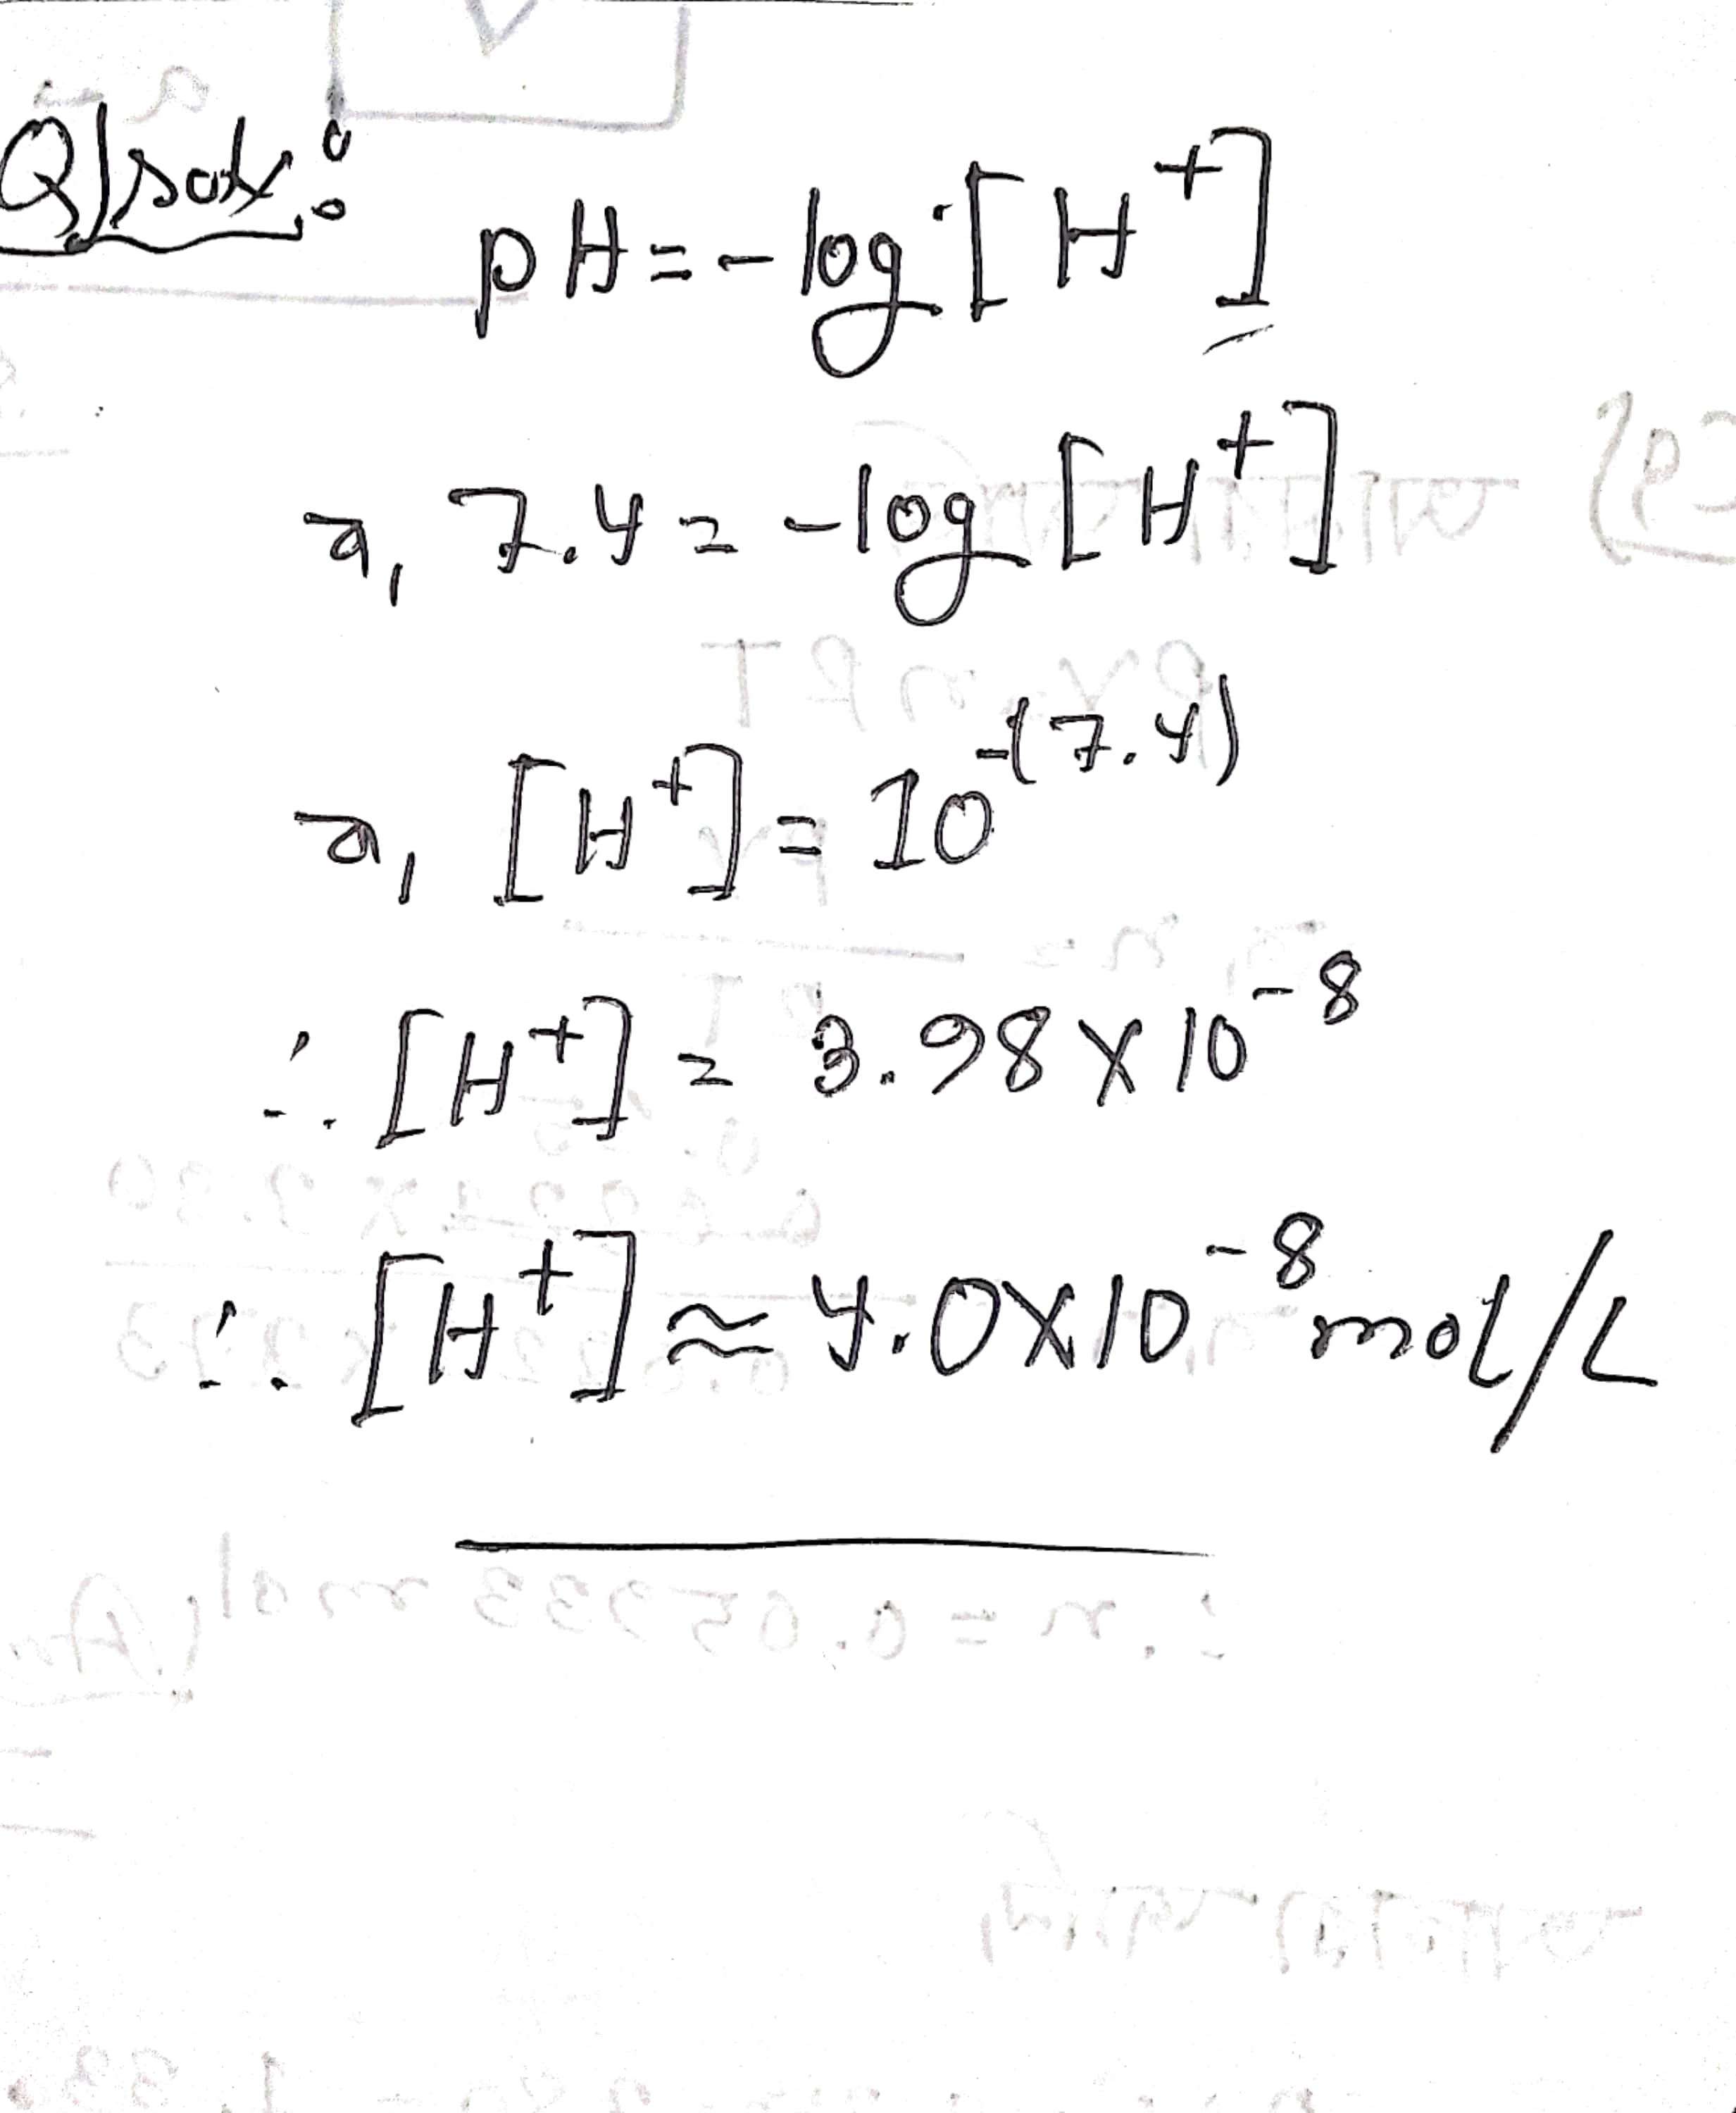 Q|soln:
pH = - log [H⁺]
বা, 7.4 = -log [H⁺]
বা, [H⁺] = 10^-(7.4)
∴ [H⁺] = 3.98 × 10⁻⁸
∴ [H⁺] ≈ 4.0×10⁻⁸ mol/L